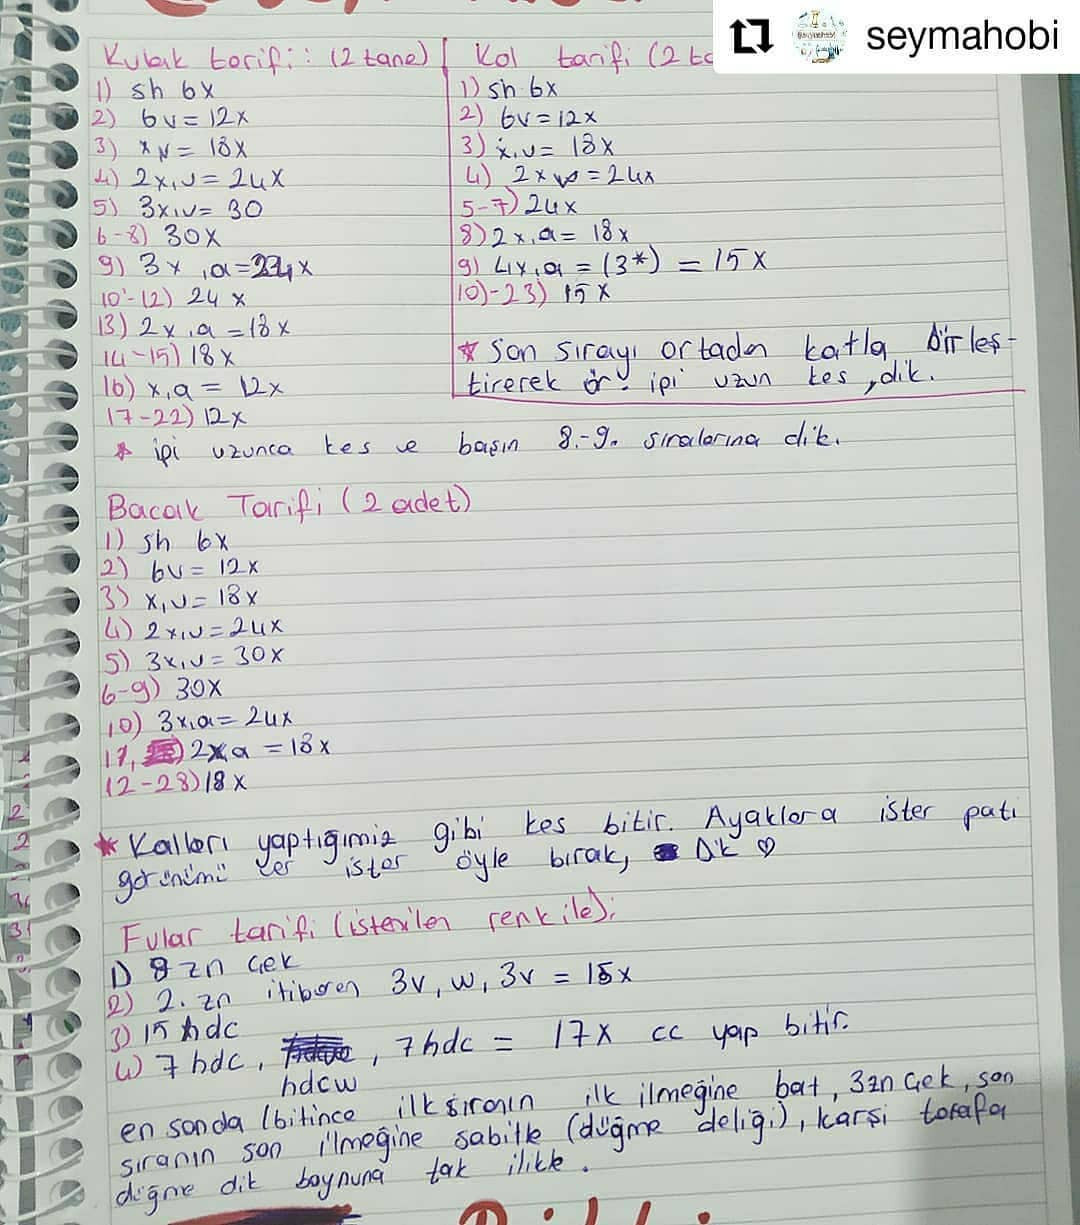 seymahobi
Kulak tarifi: (2 tane)
1) sh 6x
2) 6v = 12x
3) x,v = 18x
4) 2x,v = 24x
5) 3x,v = 30
6-8) 30x
9) 3x,a = 24x
10-12) 24x
13) 2x,a = 18x
14-15) 18x
16) x,a = 12x
17-22) 12x
* ipi uzunca kes ve başın 8.-9. sıralarına dik.
Kol tarifi (2
1) sh 6x
2) 6v = 12x
3) x,v = 18x
4) 2x v = 24x
5-7) 24x
8) 2x,a = 18x
9) 4x,a = (3*) = 15x
10)-23) 15x
* Son sırayı ortadan katla birleş-
tirerek ör. ipi uzun kes, dik.
Bacak Tarifi (2 adet)
1) sh 6x
2) 6v = 12x
3) x,v = 18x
4) 2x,v = 24x
5) 3x,v = 30x
6-9) 30x
10) 3x,a = 24x
11, 2x,a = 18x
12-28) 18x
* Kolları yaptığımız gibi kes bitir. Ayaklara ister pati
görünümü ver ister öyle bırak, Dik ♡
Fular tarifi (istenilen renk ile):
1) 9 zn çek
2) 2. zn itibaren 3v, w, 3v = 15x
3) 15 hdc
4) 7 hdc, hdcw, 7hdc = 17x cc yap bitir.
en sonda (bitince ilk sıranın ilk ilmeğine bat, 3zn çek, son
sıranın son ilmeğine sabitle (düğme deliği), karşı tarafa
düğme dik boynuna tak ilikle.